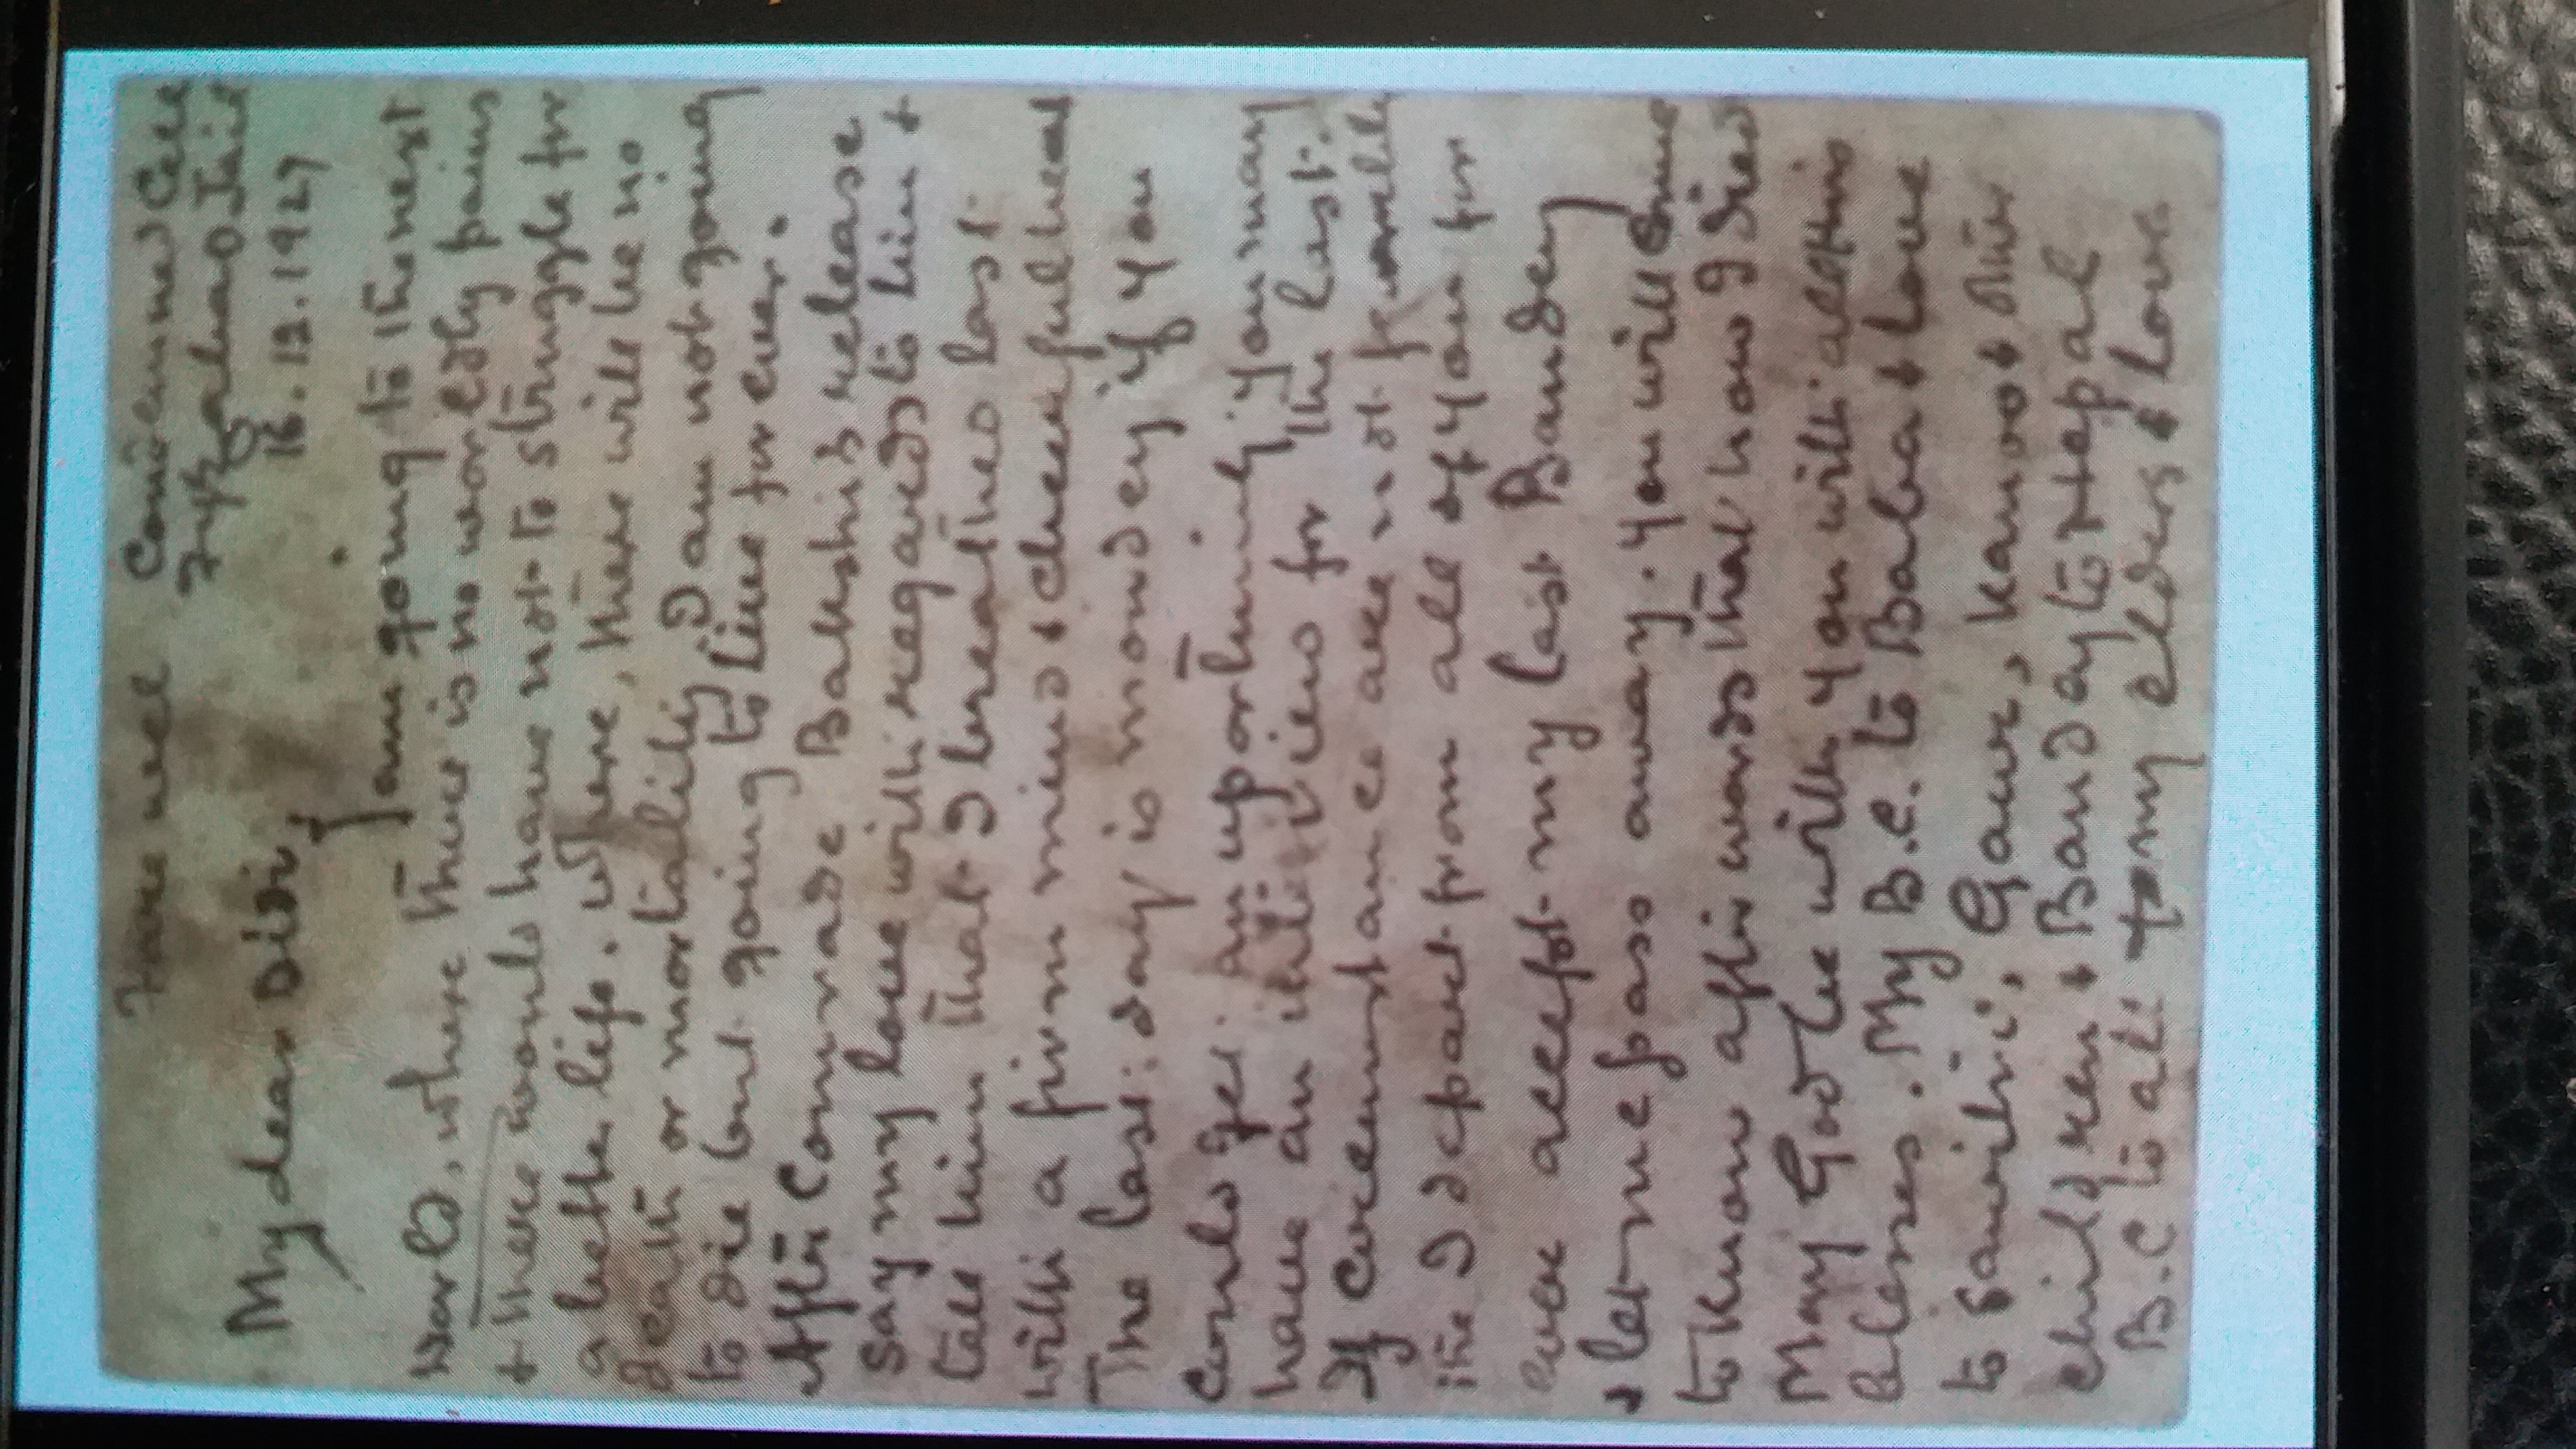 Farewell Condemned Cell
Fyzabad Jail
My dear Didi, 16.12.1927
I am going to the next
world, where there is no worldly pains
& there would have not to struggle for
a better life. Where, there will be no
death or mortality. I am not going
to die but going to live for ever.
After Comrade Bakshi's release
say my love with regards to him &
tell him that I breathed last
with a firm mind & cheerful heart
The last day is monday if you
could get an uportunity you may
have an interview for the last.
If circumstance are not
I depart from all of you for
ever accept my last Bandey
& let me pass away. You will come
to know afterwords that how I died
May God be with you with all this
blesses. My B.C. to Baba & love
to Sawitri, Gawr, Kanoo & other
children & Banday to Nepal
B.C to all to my elders & love